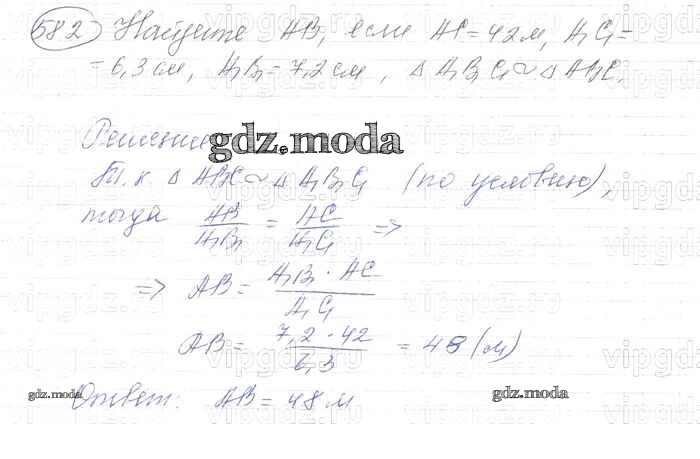 582 Найдите AB, если AC = 42 м, A₁C₁ =
= 6,3 см, A₁B₁ = 7,2 см, △ A₁B₁C₁ ~ △ ABC.
Решение
gdz.moda
Т. к. △ ABC ~ △ A₁B₁C₁ (по условию),
тогда AB/A₁B₁ = AC/A₁C₁ =>
=> AB = A₁B₁ · AC / A₁C₁
AB = 7,2 · 42 / 6,3 = 48 (м)
Ответ: AB = 48 м
gdz.moda
gdz.moda